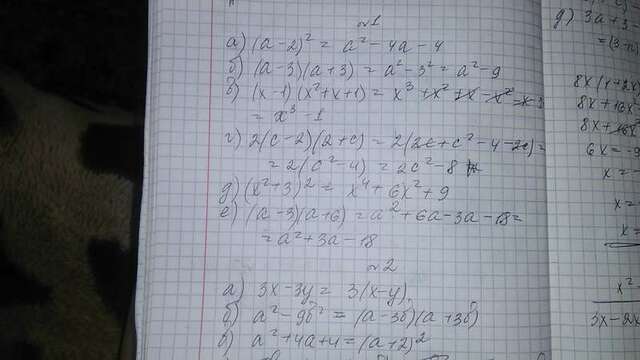 №1
а) (a-2)² = a² - 4a - 4
б) (a-3)(a+3) = a² - 3² = a² - 9
в) (x-1)(x²+x+1) = x³ + x² + x - x² - x - 1
= x³ - 1
г) 2(c-2)(2+c) = 2(2c + c² - 4 - 2c) =
= 2(c² - 4) = 2c² - 8
д) (x²+3)² = x⁴ + 6x² + 9
е) (a-3)(a+6) = a² + 6a - 3a - 18 =
= a² + 3a - 18
№2
а) 3x - 3y = 3(x-y)
б) a² - 9б² = (a-3б)(a+3б)
в) a² + 4a + 4 = (a+2)²
д) 3a + 3
= (3
8x(1+2x)
8x + 16x²
8x + 16x²
6x = -9
x = -
x = -
x =
x²
3x - 2x